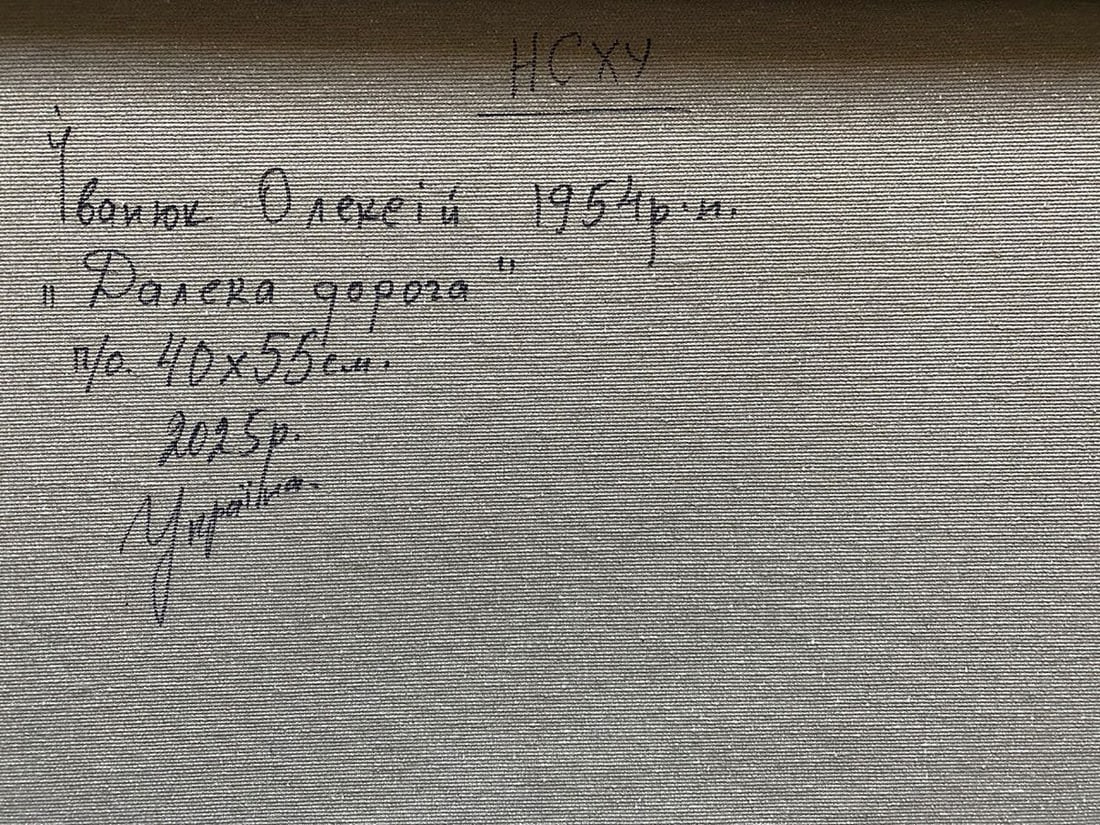 НСХУ
Іванюк Олексій 1954р.н.
"Далека дорога"
п/о. 40х55см.
2025р.
Україна.